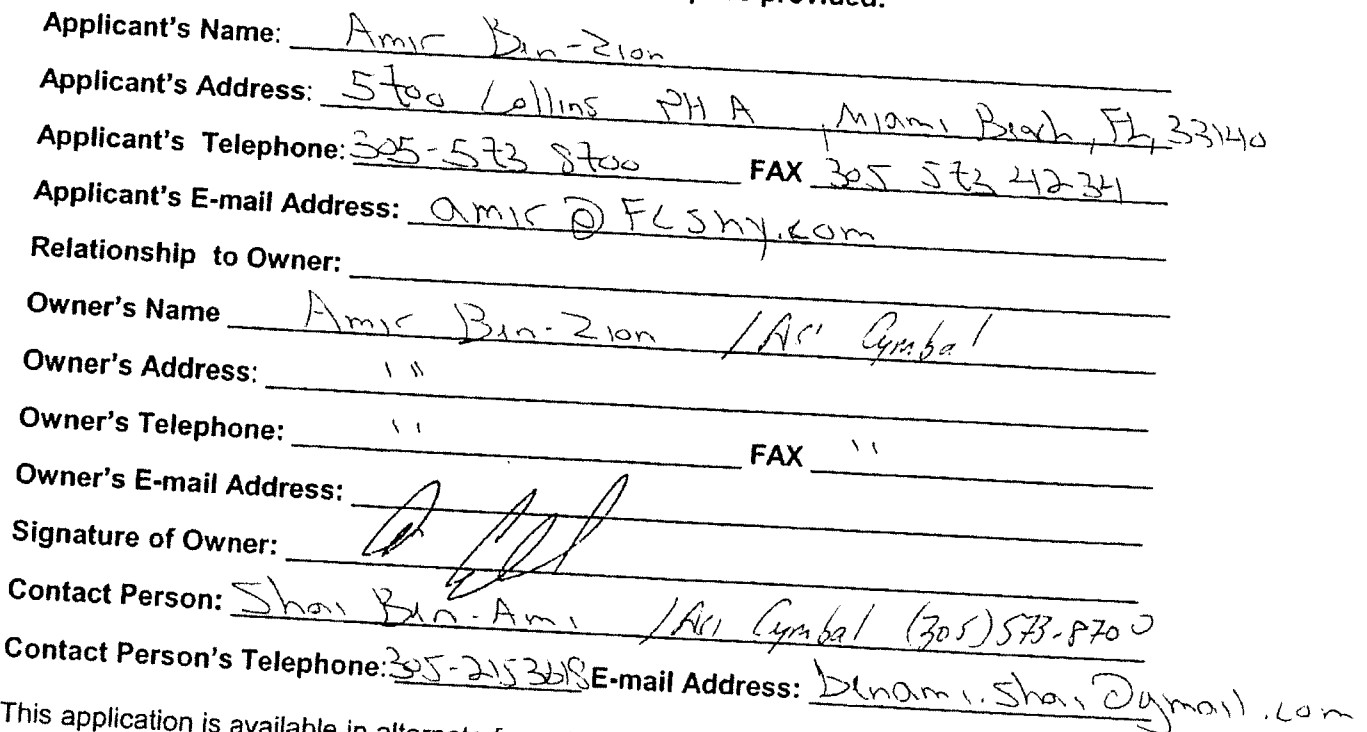 provided.
Applicant's Name: Amir Ben-Zion
Applicant's Address: 5700 Collins PH A, Miami Beach, FL, 33140
Applicant's Telephone: 305-573 8700 FAX 305 573 4234
Applicant's E-mail Address: amir@FLShy.com
Relationship to Owner:
Owner's Name Amir Ben-Zion / Ari Cymbal
Owner's Address: " "
Owner's Telephone: " FAX "
Owner's E-mail Address:
Signature of Owner:
Contact Person: Shai Ben-Ami / Ari Cymbal (305) 573-8700
Contact Person's Telephone: 305-2153618 E-mail Address: benami.shai@gmail.com
This application is available in alternate